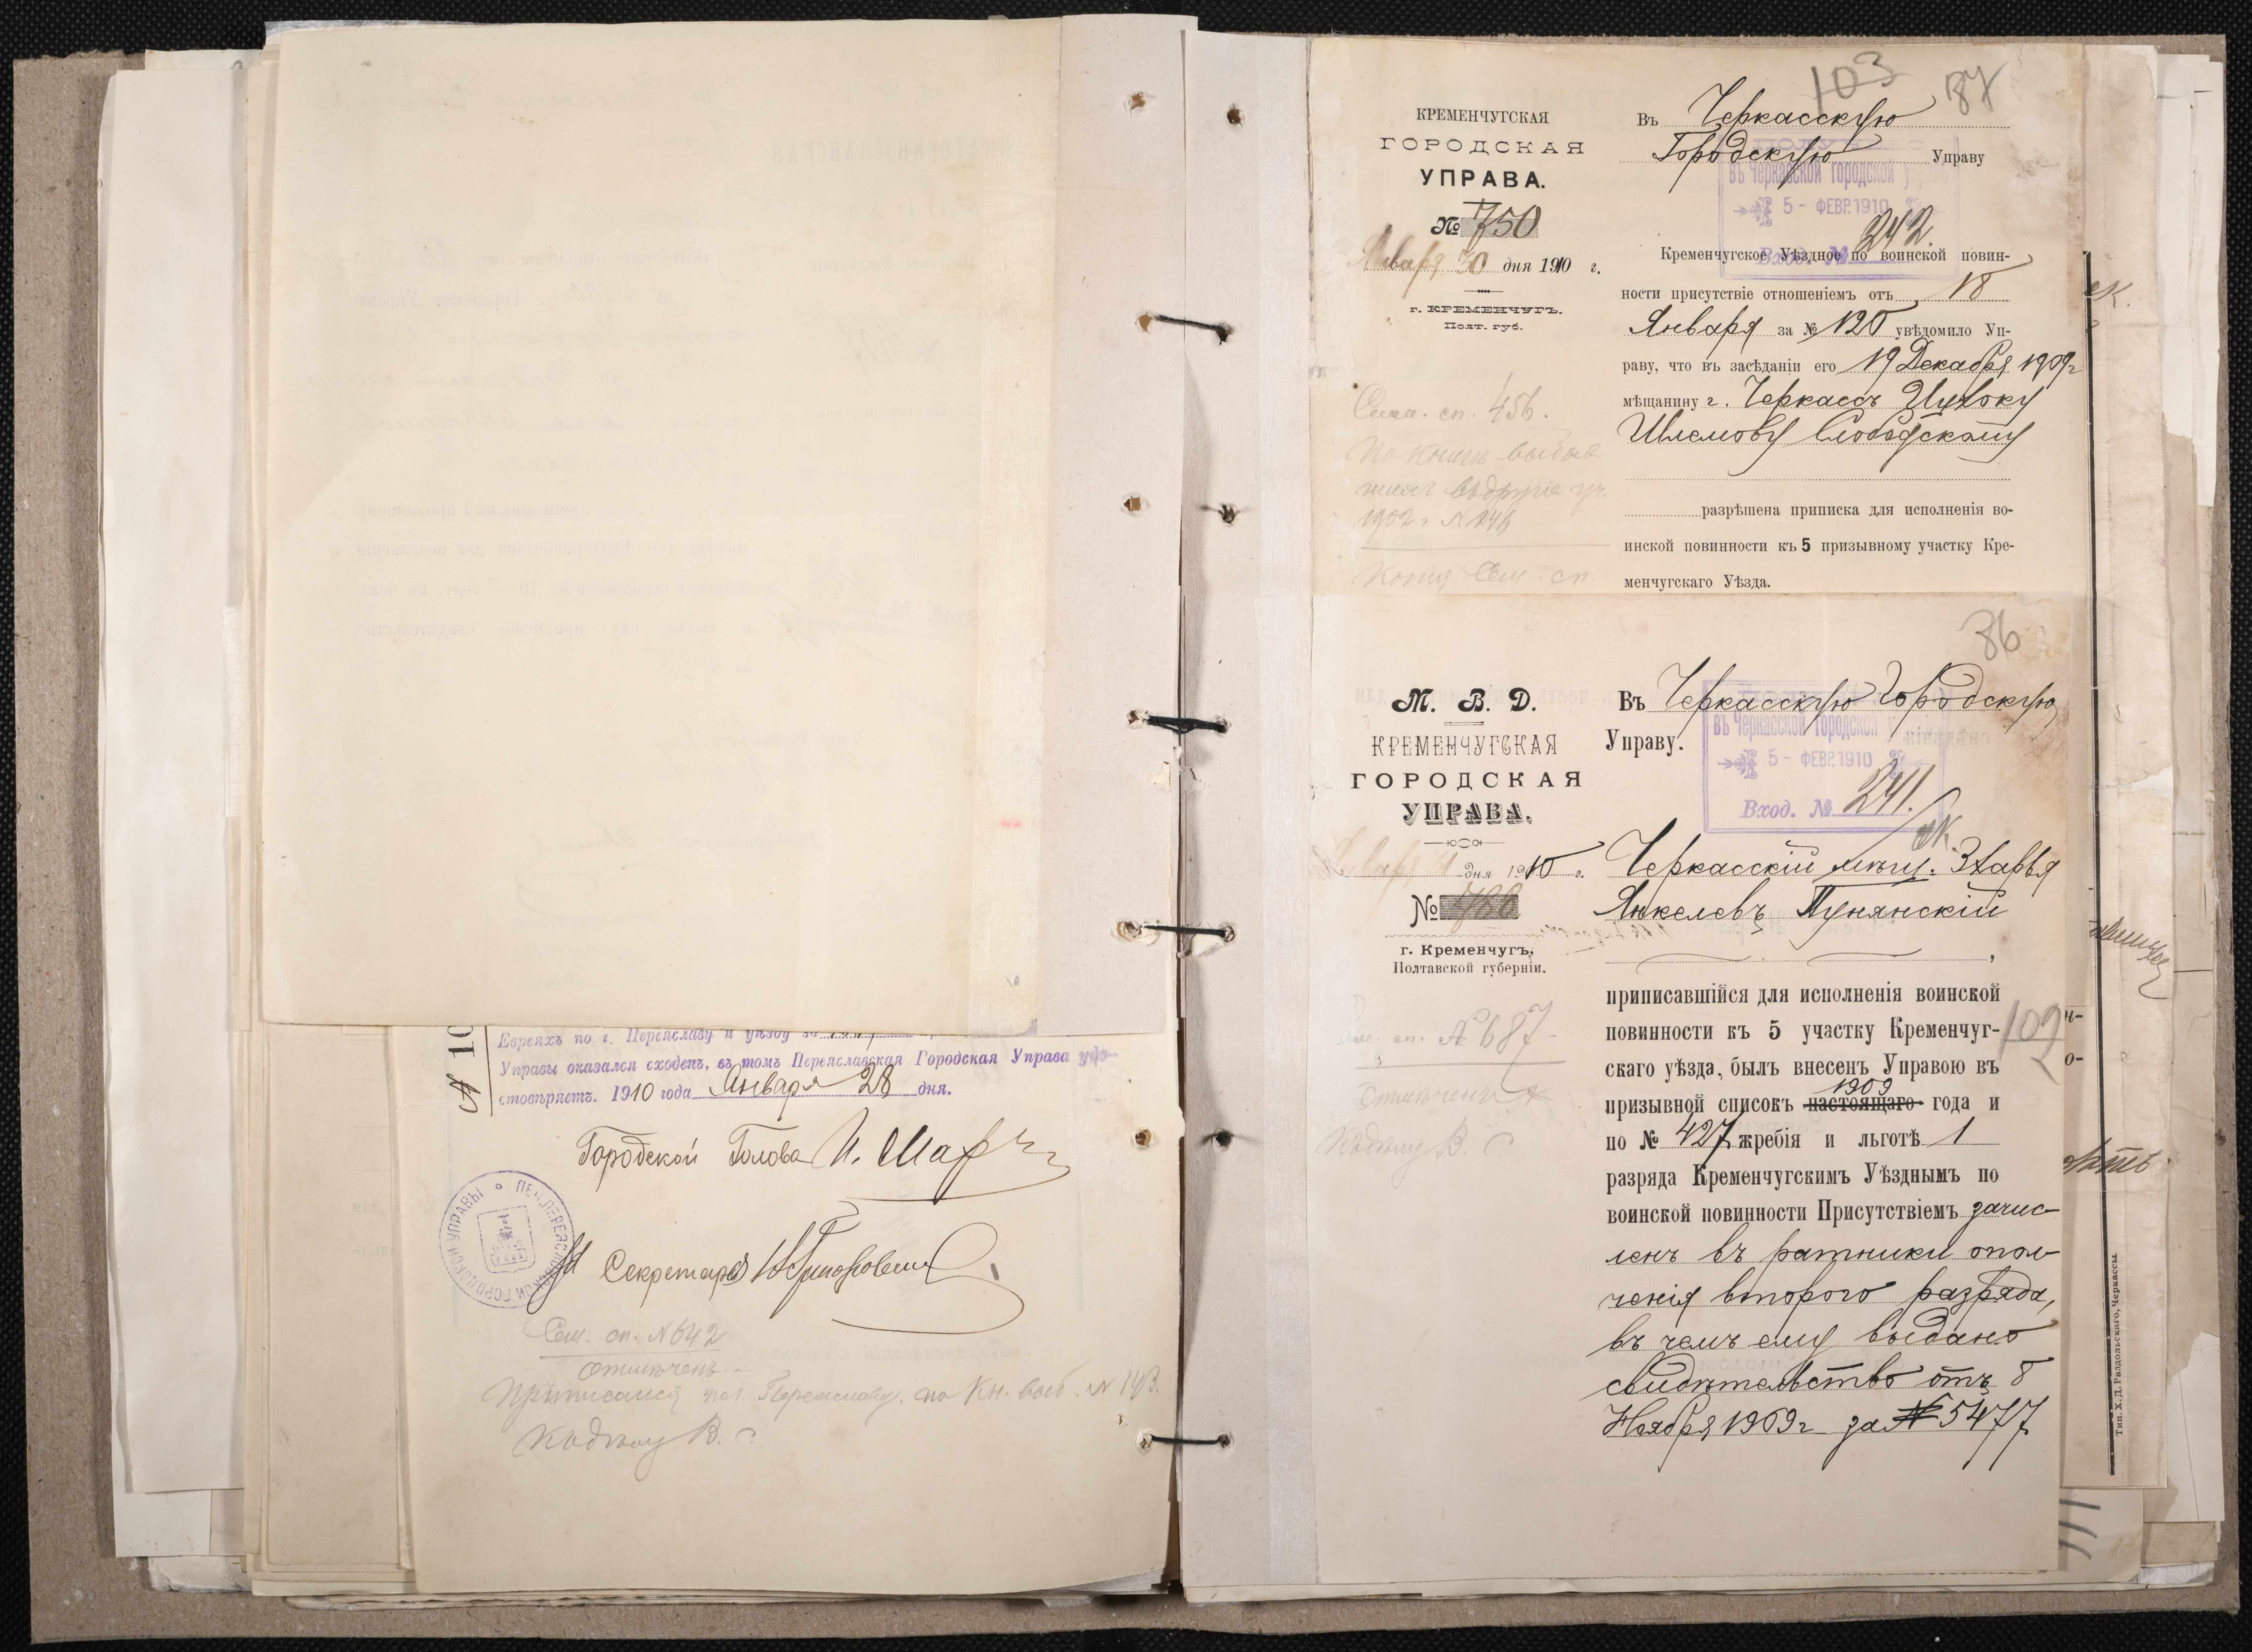 Евреяхъ по г. Переяславу и уѣзду за
Управы оказался сходенъ, въ томъ Переяславская Городская Управа удо-
стовѣряетъ. 1910 года Января 28 дня.
Городской Голова И.
Секретарь
Сем. сп. № 642
Отмѣченъ
Приписался по г. Переяславу по Кн. выб. № 143.
103
87
КРЕМЕНЧУГСКАЯ
ГОРОДСКАЯ
УПРАВА.
№ 750
Января 30 дня 1910 г.
г. КРЕМЕНЧУГЪ.
Полт. губ.
Сем. сп. 456.
По книгѣ выбыв
шихъ въ другіе
1902 г. № 146
Копія Сем. сп
Въ Черкасскую
Городскую Управу
въ Черкасской Городской
5 - ФЕВР. 1910
Вход. № 242.
Кременчугское Уѣздное по воинской повин-
ности присутствіе отношеніемъ отъ 18
Января за № 120 увѣдомило Уп-
раву, что въ засѣданіи его 19 Декабря 1909 г
мѣщанину г. Черкассъ Ицхоку
Шлемову Слободскому
разрѣшена приписка для исполненія во-
инской повинности къ 5 призывному участку Кре-
менчугскаго Уѣзда.
86
М. В. Д.
КРЕМЕНЧУГСКАЯ
ГОРОДСКАЯ
УПРАВА.
Января 31 дня 1910 г.
№ 788
г. Кременчугъ,
Полтавской губерніи.
сп. № 687
Отмѣченъ
Въ Черкасскую Городскую
Управу.
въ Черкасской Городской
5 - ФЕВР. 1910
Вход. № 241.
Черкасскій мѣщ. Зхарья
Янкелевъ Пунянскій
приписавшійся для исполненія воинской
повинности къ 5 участку Кременчуг-
скаго уѣзда, былъ внесенъ Управою въ
1909
призывной списокъ настоящаго года и
по № 427 жребія и льготѣ 1
разряда Кременчугскимъ Уѣзднымъ по
воинской повинности Присутствіемъ зачис-
ленъ въ ратники опол-
ченія второго разряда,
въ чемъ ему выдано
свидѣтельство отъ 8
Ноября 1909 г за № 5477
102
Тип. Х. Д. Раздольскаго, Черкассы